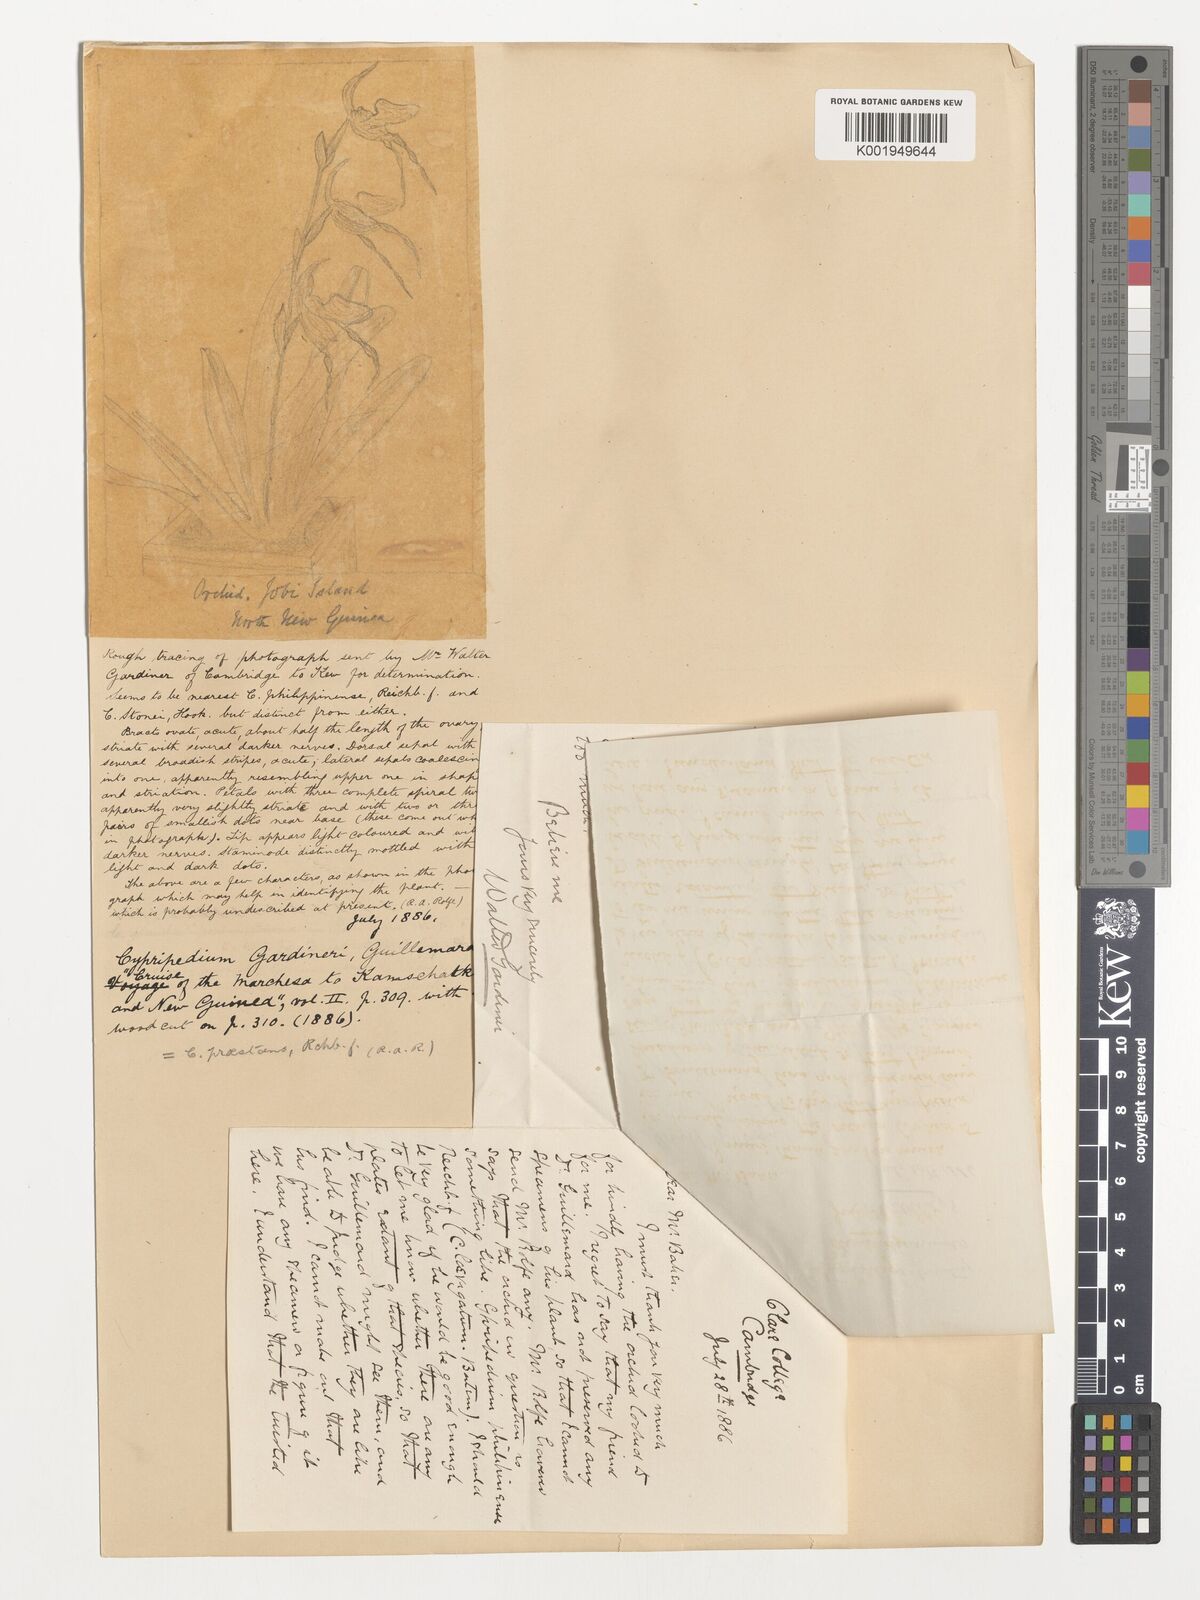 ROYAL BOTANIC GARDENS KEW
K001949644
Orchid. Jobi Island
North New Guinea
Rough tracing of photograph sent by Mr. Walter
Gardiner of Cambridge to Kew for determination.
Seems to be nearest C. philippinense, Reichb. f. and
C. Stonei, Hook. but distinct from either.
Bracts ovate, acute, about half the length of the ovary,
striate with several darker nerves. Dorsal sepal with
several broadish stripes, acute; lateral sepals coalescin
into one, apparently resembling upper one in shap
and striation. Petals with three complete spiral tw
apparently very slightly striate and with two or thr
pairs of smallish dots near base (these come out wh
in photograph). Lip appears light coloured and wit
darker nerves. Staminode distinctly mottled with
light and dark dots.
The above are a few characters, as shown in the pho
graph which may help in identifying the plant. —
which is probably undescribed at present. (R.A. Rolfe)
July 1886.
Cypripedium Gardineri, Guillemard
"Cruise
Voyage of the Marchesa to Kamschatk
and New Guinea", vol. II. p. 309. with
woodcut on p. 310. (1886).
= C. præstans, Rchb. f. (R.A.R.)
too much.
Believe me
Yours very sincerely
Walter Gardiner
Clare College
Cambridge
July 28th 1886
Dear Mr. Baker.
I must thank you very much
for kindly having the orchid looked to
for me. I regret to say that my friend
Dr. Guillemard has not preserved any
specimens of his plant, so that I cannot
send Mr. Rolfe any. Mr. Rolfe however
says that the orchid in question is
something like Cypripedium philipinense
Reichb. f. (C. lævigatum. Batem). I should
be very glad if he would be good enough
to let me know whether there are any
plates extant of that species, so that
Dr. Guillemard might see them, and
be able to judge whether they are like
his find. I cannot make out that
we have any specimens or figure of it
here. I understand that the twisted
D50 Illuminant, 2 degree observer
Density
Golden Thread
Colors by Munsell Color Services Lab
Don Williams
inches
Royal Botanic Gardens
Kew
0 1 2 3 4 5 6 7 8 9 10
cm
copyright reserved